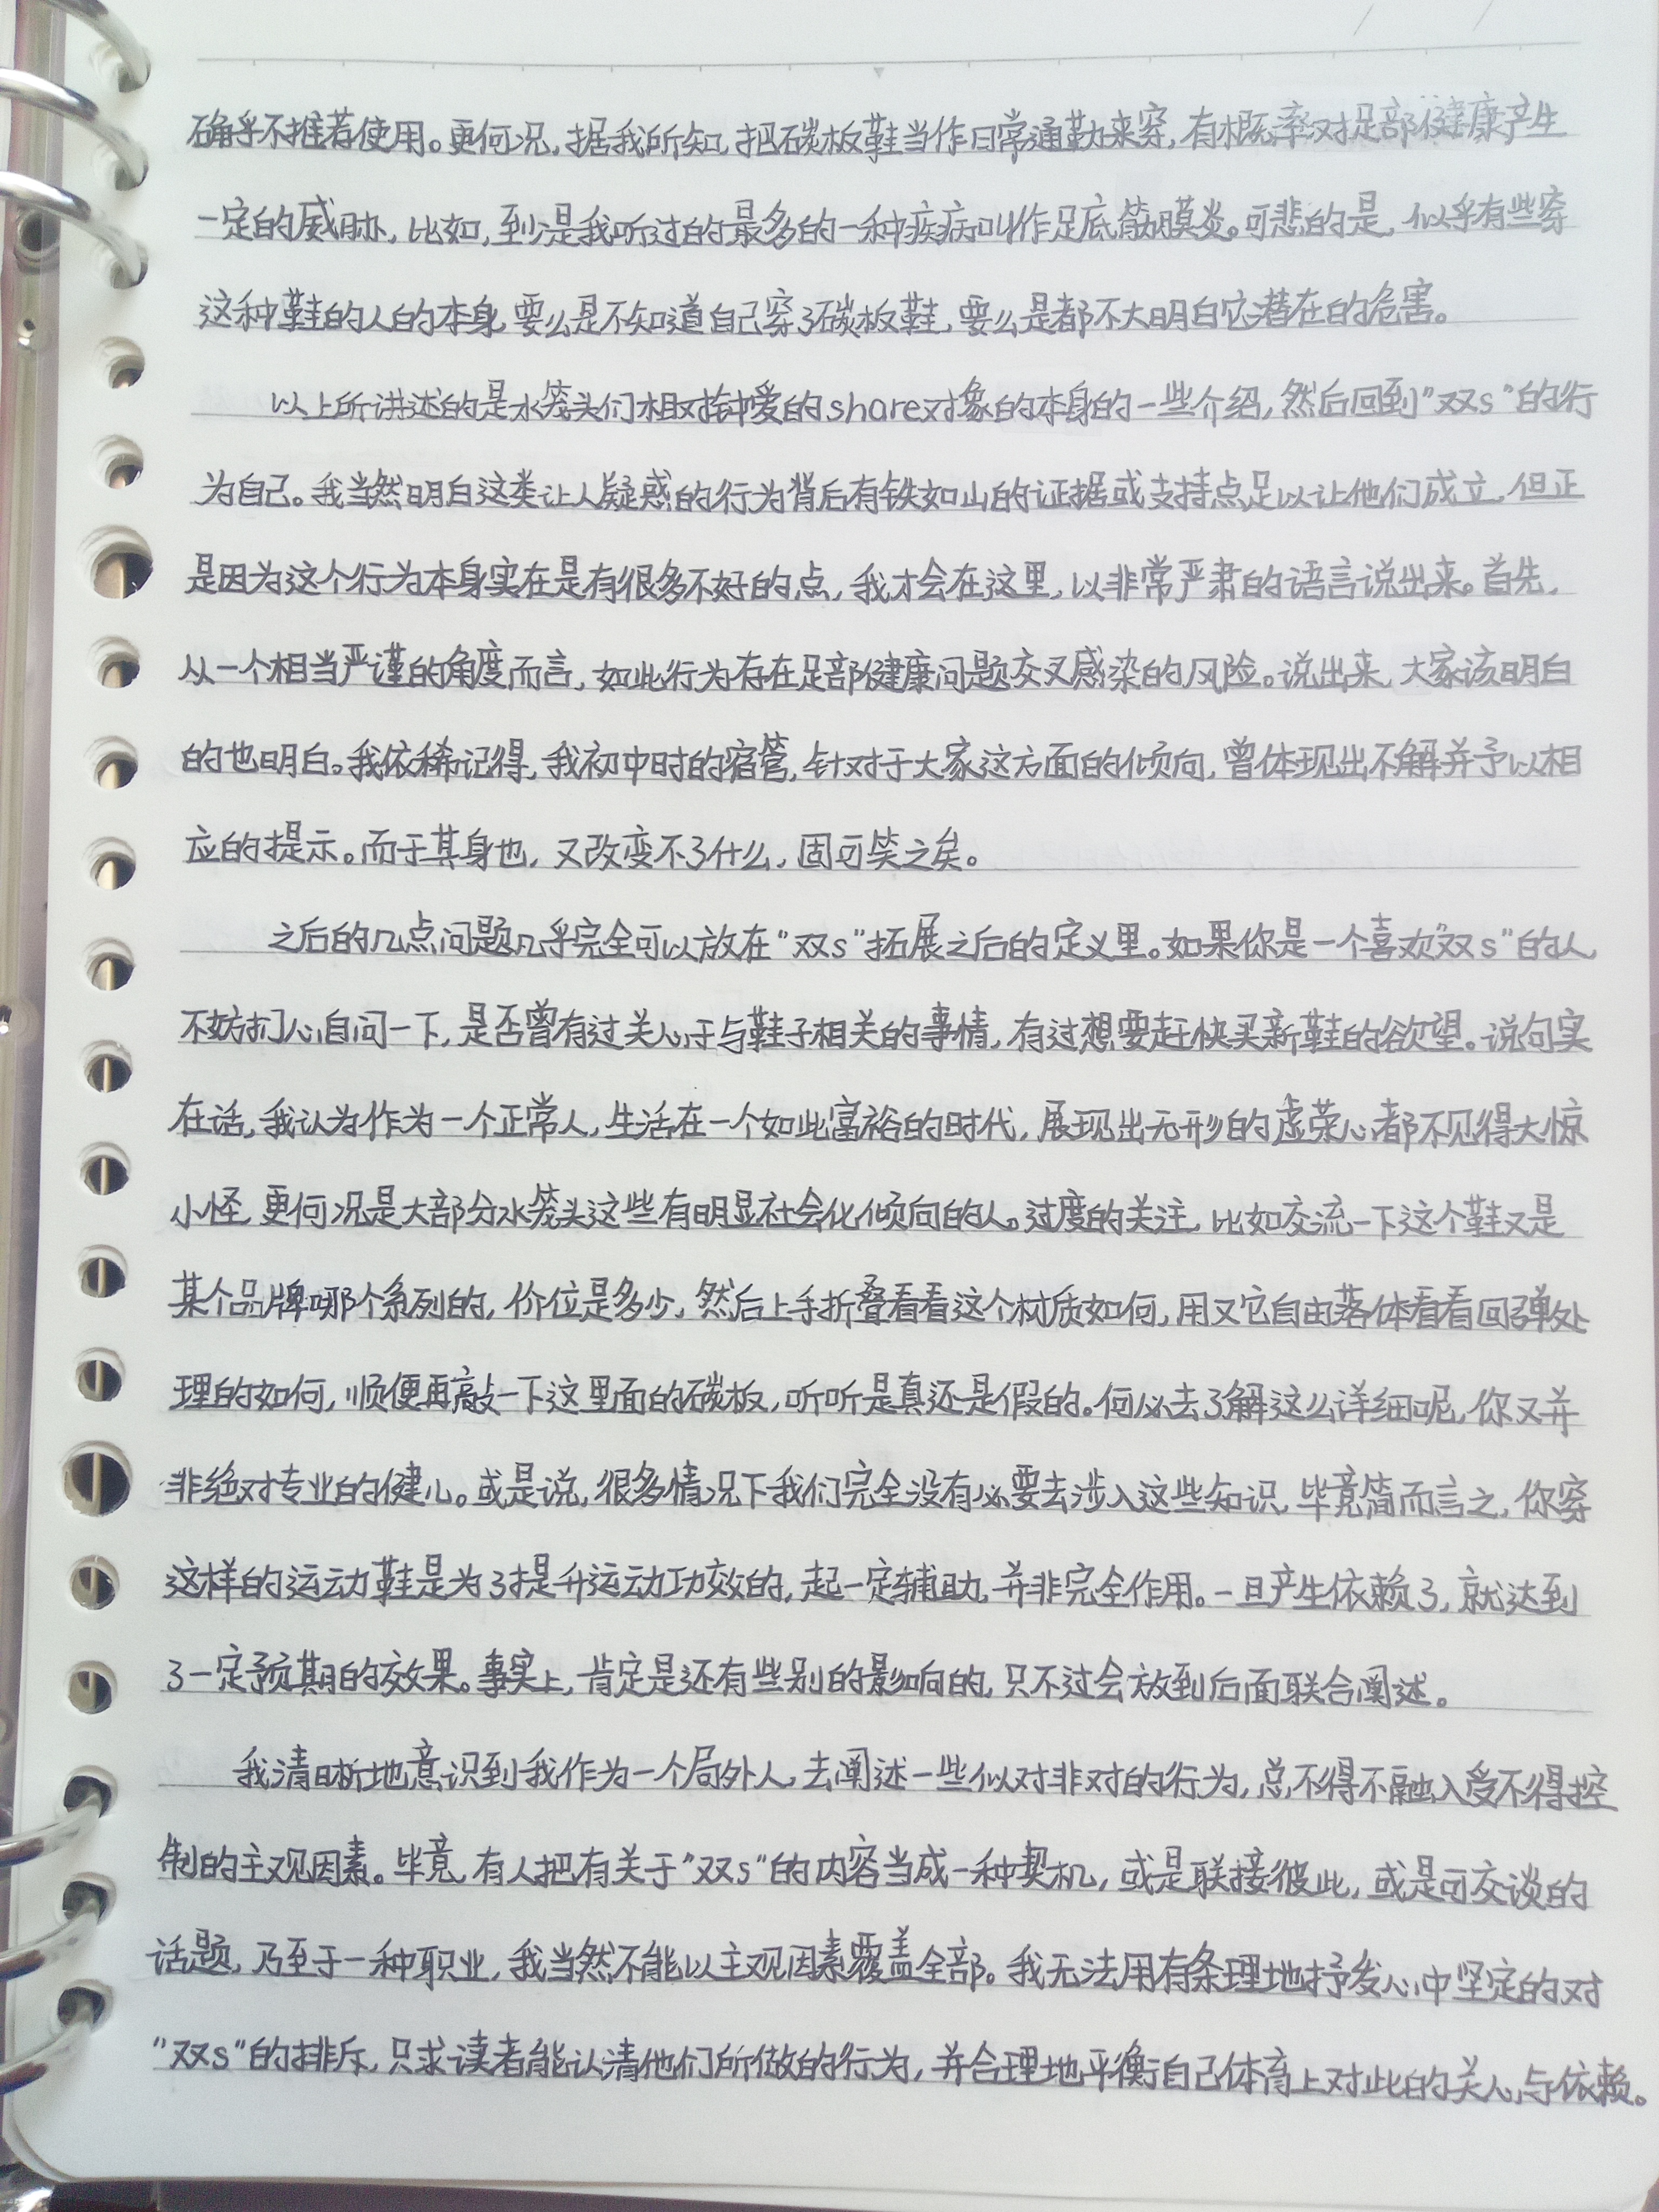 确乎不推荐使用。更何况，据我所知，把碳板鞋当作日常通勤来穿，有概率对足部健康产生
一定的威胁，比如，到是我听过的最多的一种疾病叫作足底筋膜炎。可悲的是，似乎有些穿
这种鞋的人的本身，要么是不知道自己穿了碳板鞋，要么是都不大明白它潜在的危害。
以上所讲述的是水笼头们相对钟爱的share对象的本身的一些介绍，然后回到"双s"的行
为自己。我当然明白这类让人疑惑的行为背后有铁如山的证据或支持点足以让他们成立，但正
是因为这个行为本身实在是有很多不好的点，我才会在这里，以非常严肃的语言说出来。首先，
从一个相当严谨的角度而言，如此行为存在足部健康问题交叉感染的风险。说出来，大家该明白
的也明白。我依稀记得，我初中时的宿管，针对于大家这方面的倾向，曾体现出不解并予以相
应的提示。而于其身也，又改变不了什么，固可笑之矣。
之后的几点问题几乎完全可以放在"双s"拓展之后的定义里。如果你是一个喜欢"双s"的人，
不妨扪心自问一下，是否曾有过关心于与鞋子相关的事情，有过想要赶快买新鞋的欲望。说句实
在话，我认为作为一个正常人，生活在一个如此富裕的时代，展现出无形的虚荣心都不见得大惊
小怪，更何况是大部分水笼头这些有明显社会化倾向的人。过度的关注，比如交流一下这个鞋又是
某个品牌哪个系列的，价位是多少，然后上手折叠看看这个材质如何，用又它自由落体看看回弹处
理的如何，顺便再敲一下这里面的碳板，听听是真还是假的。何必去了解这么详细呢，你又并
非绝对专业的健儿。或是说，很多情况下我们完全没有必要去涉入这些知识，毕竟简而言之，你穿
这样的运动鞋是为了提升运动功效的，起一定辅助，并非完全作用。一旦产生依赖了，就达到
了一定预期的效果。事实上，肯定是还有些别的影响的，只不过会放到后面联合阐述。
我清晰地意识到我作为一个局外人，去阐述一些似对非对的行为，总不得不融入受不得控
制的主观因素。毕竟，有人把有关于"双s"的内容当成一种契机，或是联接彼此，或是可交谈的
话题，乃至于一种职业，我当然不能以主观因素覆盖全部。我无法用有条理地抒发心中坚定的对
"双s"的排斥，只求读者能认清他们所做的行为，并合理地平衡自己体育上对此的关心与依赖。